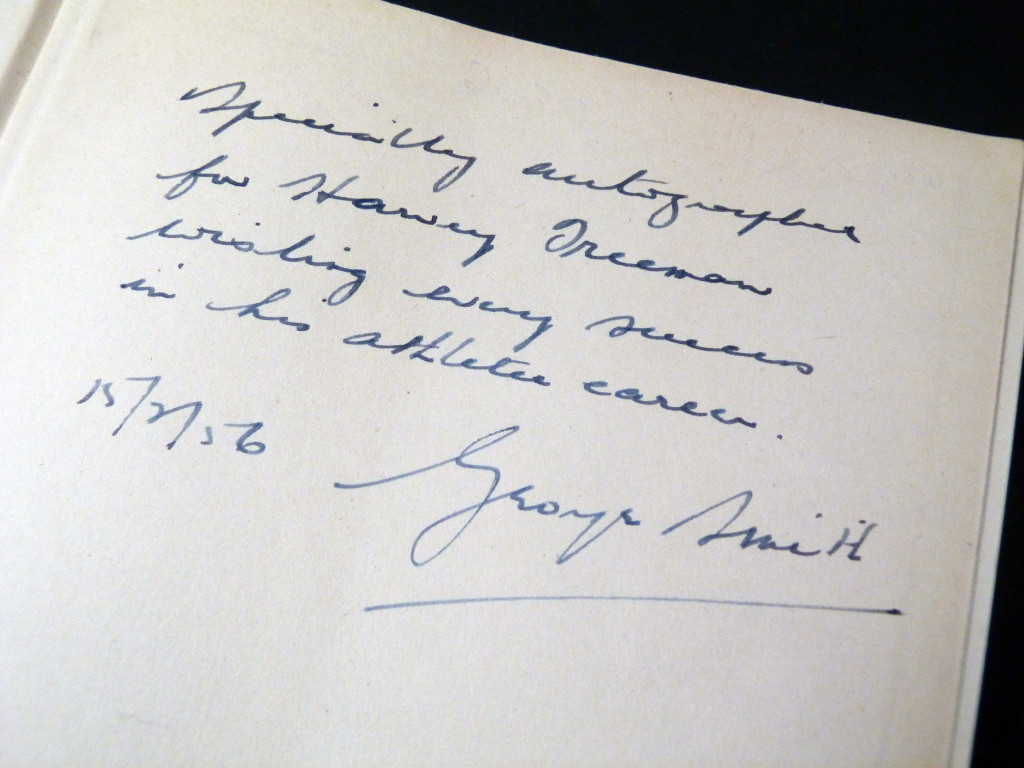 Specially autographed
for Harvey Freeman
wishing every success
in his athletic career.
15/2/56
George Smith